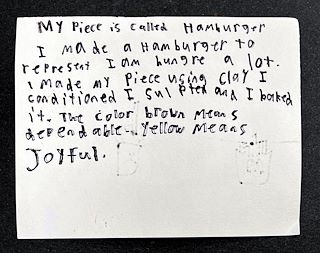 My Piece is called Hamburger
I made a Hamburger to
represent I am hungre a lot.
I made my Piece using clay I
conditioned I Sul Pted and I baked
it. The color brown Means
dependable. Yellow Means
Joyful.